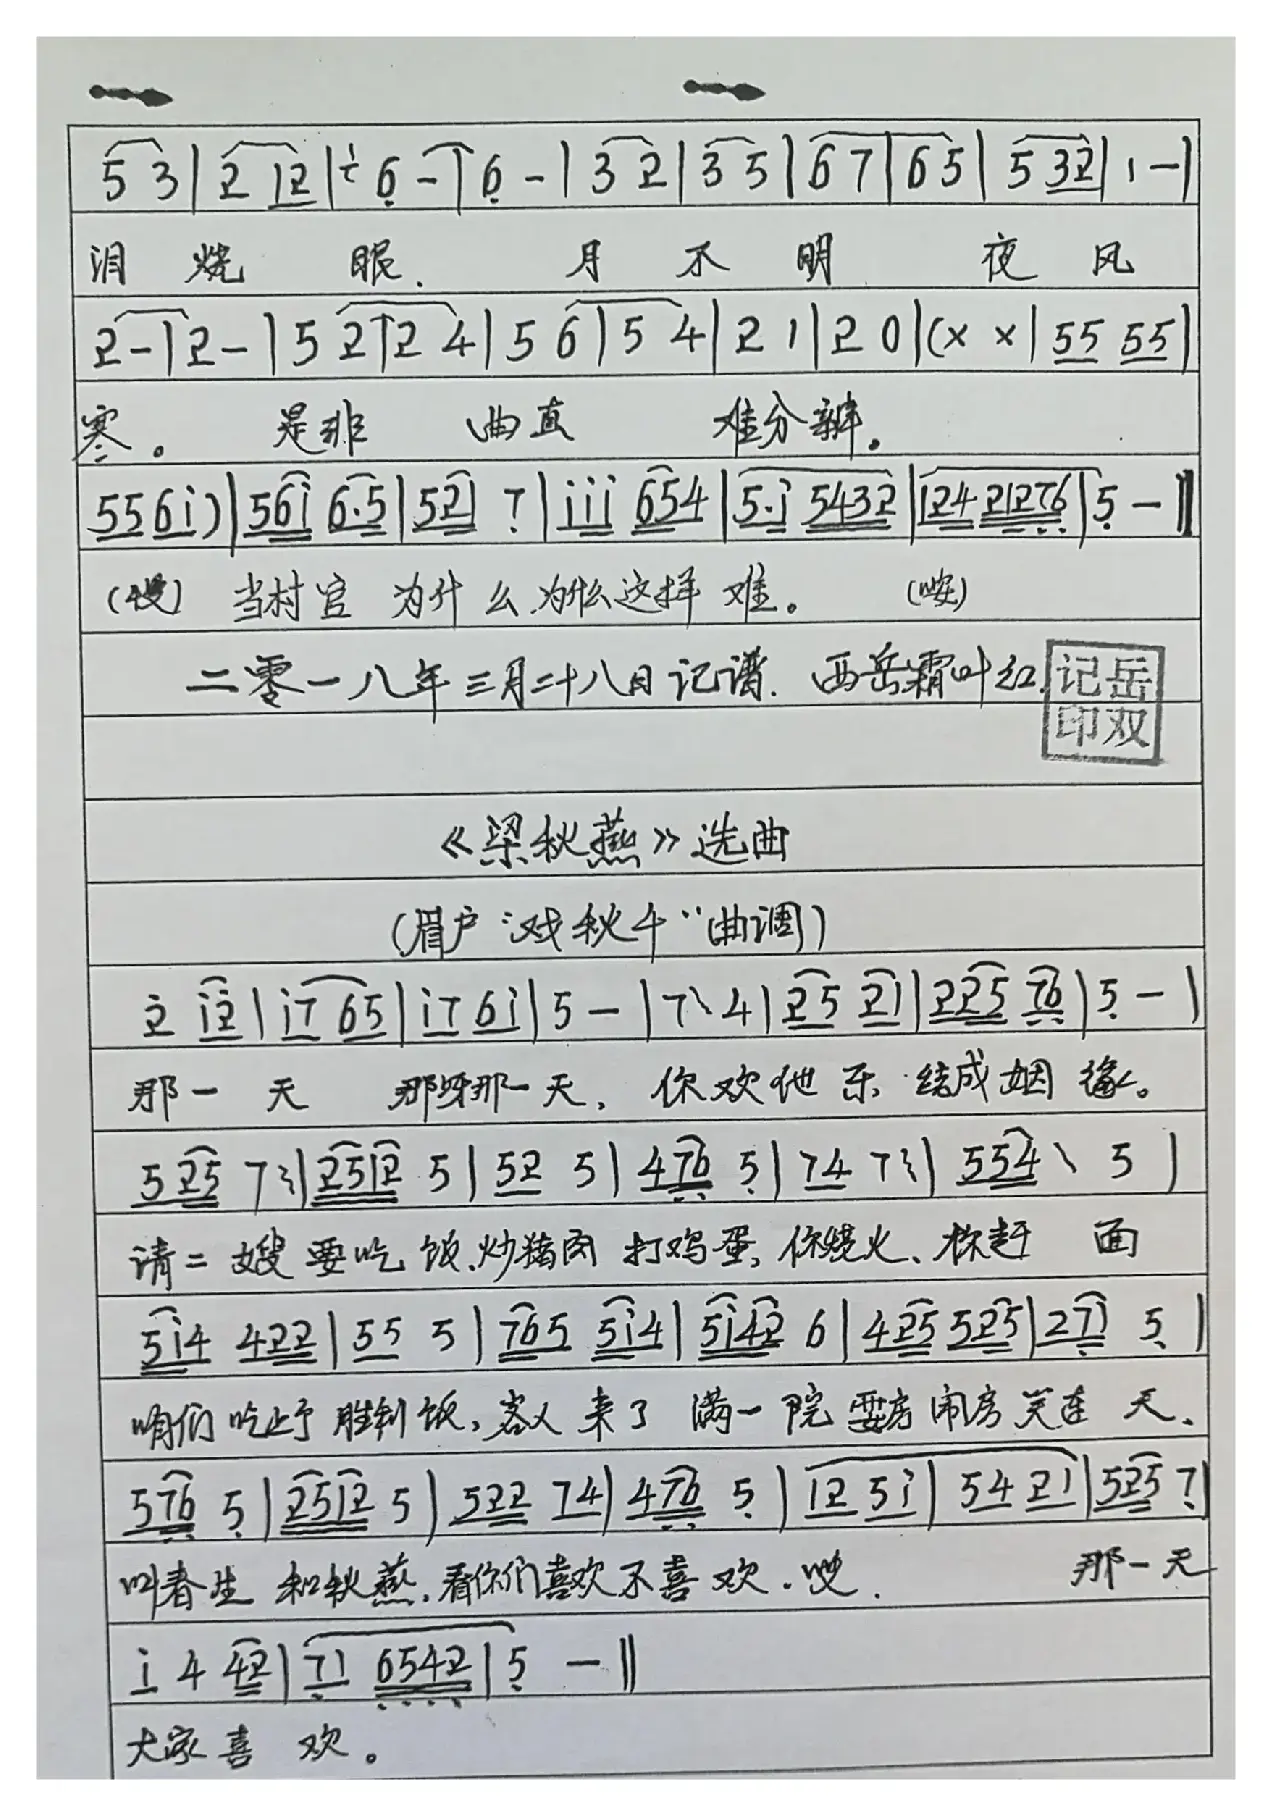 5 3 | 2 12 | 6 - | 6 - | 3 2 | 3 5 | 6 7 | 6 5 | 5 32 | 1 - |
泪烧眼. 月不明 夜风
2 - | 2 - | 5 2 | 2 4 | 5 6 | 5 4 | 2 1 | 2 0 | (× × | 55 55 |
寒。 是非 曲直 难分辨。
55 6i) | 56i 6·5 | 521 7 | iii 654 | 5·i 5432 | 124 21276 | 5 - ‖
当村官 为什么为什么这样难。
二零一八年三月二十八日记谱. 西岳霜叶红.
记岳
印双
《梁秋燕》选曲
(眉户"戏秋千"曲调)
2 i2 | i7 65 | i7 6i | 5 - | 7 4 | 25 21 | 225 76 | 5 - |
那一天 那呀那一天, 你欢他乐 结成姻缘。
525 7 | 2512 5 | 52 5 | 476 5 | 74 7 | 554 5 |
请二嫂要吃饭,炒猪肉打鸡蛋,你烧火、你赶面
5i4 422 | 55 5 | 765 5i4 | 5i42 6 | 425 525 | 271 5 |
咱们吃 饭,客人来了满一院 耍房闹房笑连天.
576 5 | 2512 5 | 522 74 | 476 5 | 12 5i | 54 21 | 525 7 |
叫春生和秋燕,看你们喜欢不喜欢. 那一天
i 4 42 | 71 6542 | 5 - ‖
大家喜欢。